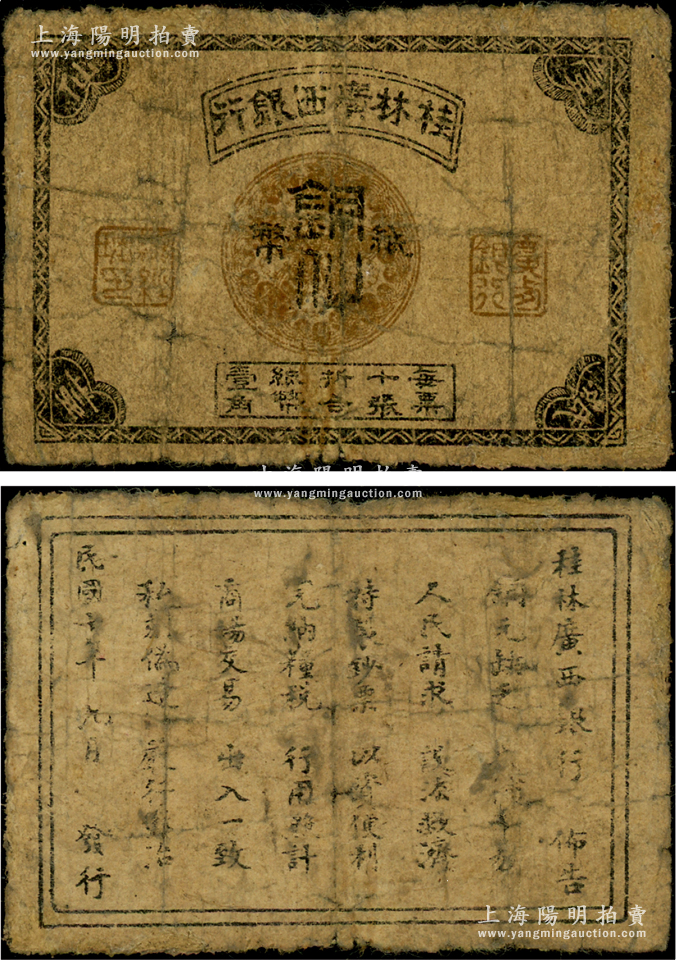 上海陽明拍賣
www.yangmingauction.com
桂林廣西銀行
銅仙
紙幣
廣西
銀行
每票十張折合紙幣壹角
上海陽明拍賣
www.yangmingauction.com
桂林廣西銀行 佈告
銅元缺乏
人民請求 設法救濟
特製鈔票 以資便利
完納糧稅 行用
商場交易 出入一致
私刻偽造 嚴行
民國十年九月 發行
上海陽明拍賣
www.yangmingauction.com